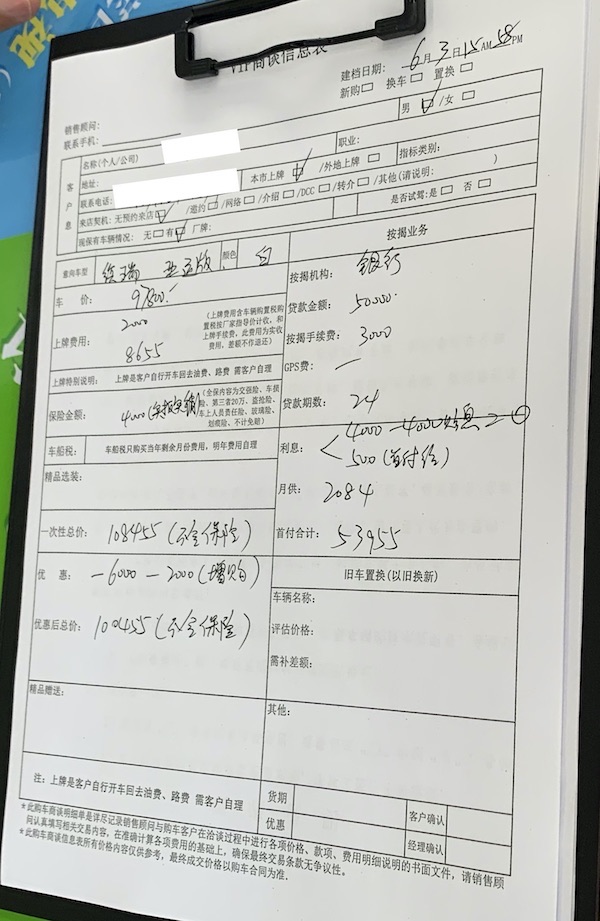 VIP商谈信息表
建档日期: 6月3日15AM 58PM
新购□ 换车□ 置换□
销售顾问:
联系手机:
客户信息
名称(个人/公司)
男☑/女□
地址:
职业:
联系电话:
本市上牌☑/外地上牌□
指标类别:
来店契机: 无预约来店☑/邀约□/网络□/介绍□/DCC□/转介□/其他(请说明: )
现保有车辆情况: 无□有☑ 厂牌:
是否试驾:是□ 否□
意向车型
颜色
白
车 价: 97800.-
上牌费用: 2000
8655
(上牌费用含车辆购置税购
置税按厂家指导价计收，和
上牌手续费，此费用为实收
费用，差额不作退还)
上牌特别说明: 上牌是客户自行开车回去油费、路费 需客户自理
保险金额: 4000(实报实销)
(全保内容为交强险、车损
险、第三者20万、盗抢险、
车上人员责任险、玻璃险、
划痕险、不计免赔)
车船税: 车船税只购买当年剩余月份费用，明年费用自理
精品选装:
一次性总价: 108455(不含保险)
优 惠: -6000 -2000(增购)
优惠后总价: 100455(不含保险)
精品赠送:
按揭业务
按揭机构: 银行
贷款金额: 50000.
按揭手续费: 3000
GPS费: 一
贷款期数: 24
利息: < 4000 -4000
500(首付给)
月供: 2084
首付合计: 53955
旧车置换(以旧换新)
车辆名称:
评估价格:
需补差额:
其他:
注: 上牌是客户自行开车回去油费、路费 需客户自理
货期
优惠
客户确认
经理确认
*此购车商谈明细单是详尽记录销售顾问与购车客户在洽谈过程中进行各项价格、款项、费用明细说明的书面文件，请销售顾
问认真填写相关交易内容，在准确计算各项费用的基础上，确保最终交易条款无争议性。
*此购车商谈信息表所有价格内容仅供参考，最终成交价格以购车合同为准.